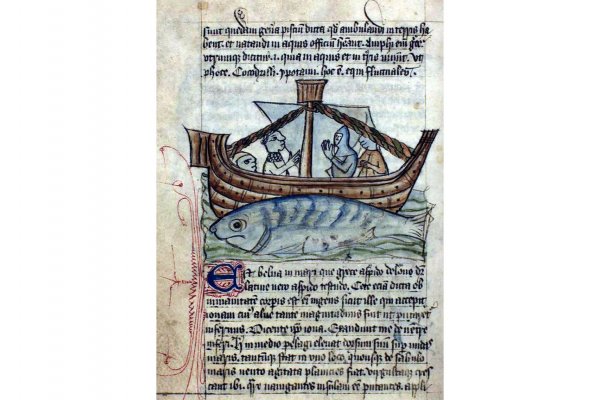 sunt quedam gen̄a pisciū dicta qd̄ ambulandi in terris ha
bent. et natandi in aquis officiū hēant. Amphi em̄
dicitur .i. quia in aquis et in tr̄is uiuūt. vt
phoce. Cocodrilli. ypotami. hoc ē. equi fluctuales.
Est belua in mari que grece aspido delone dr̄
latine uero aspido testudo. Cete eciā dicta ob
inmanitatem corpis est em̄ ingens sicut ille qui accepit
ionam cuiꝰ aluꝰ tante magnitudinis fuit ut putaret
infernus. Dicente ip̄o iona. Exaudiuit me de uentre
inferi. in medio pelagi eleuat dorsum suū sup̄ undas
maris. stat in uno loco. quousque de sabulo
maris uento agitata planicies fiat. cres
cant ibi. nauigantes insulam eē putantes. appli